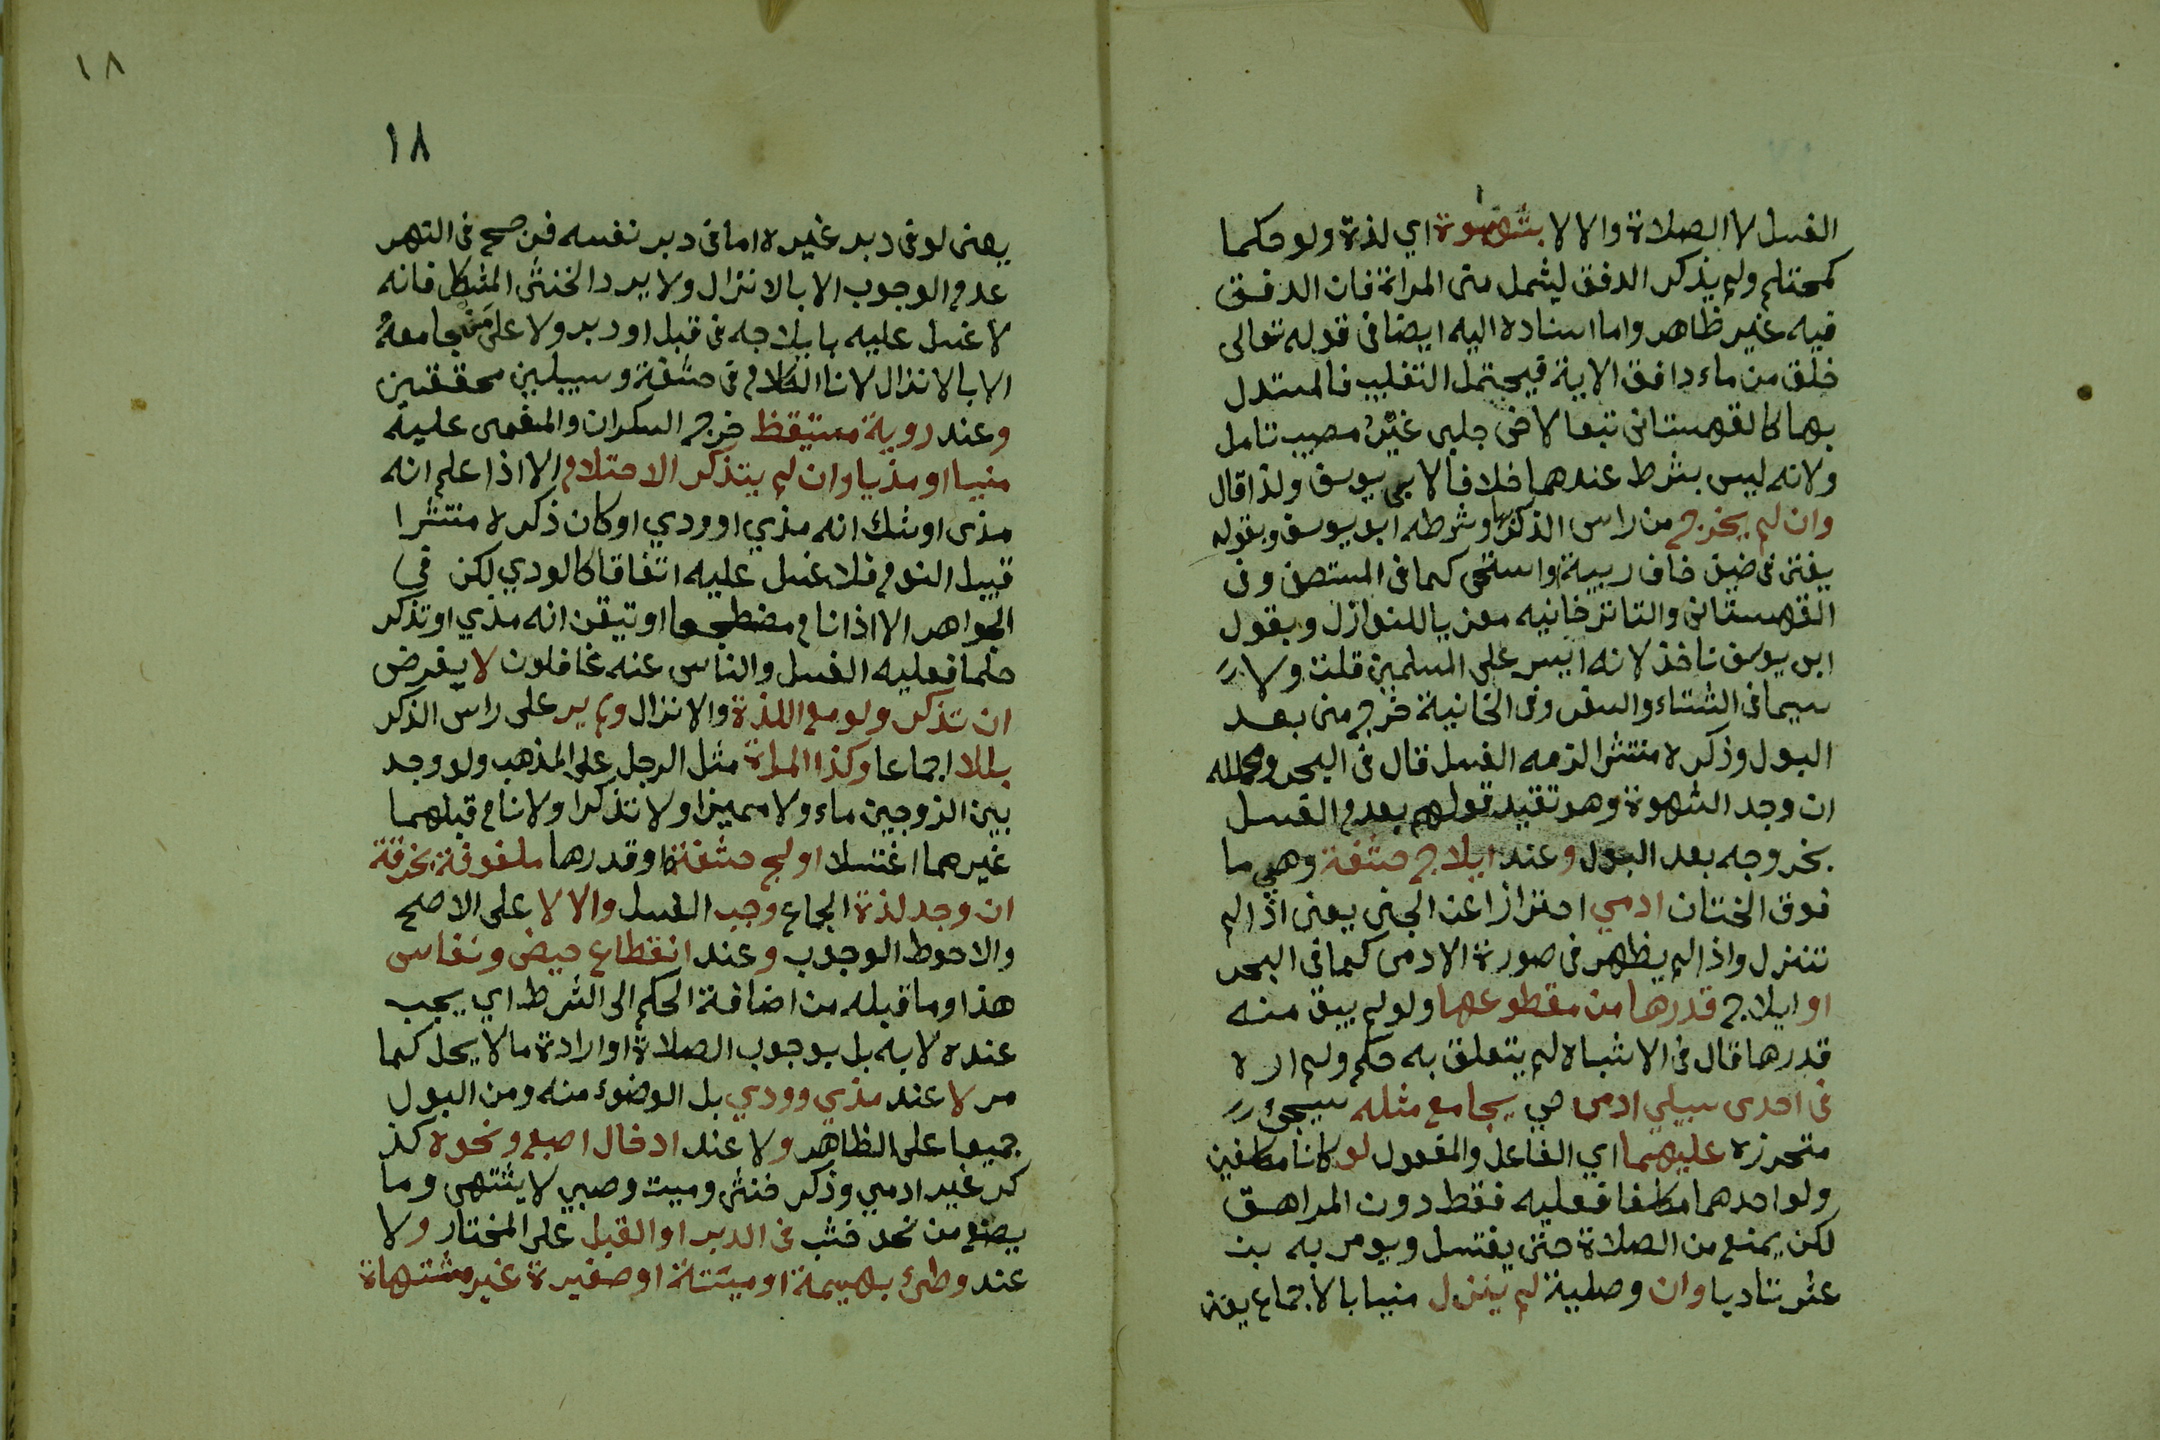 الغسل لا الصلاة والا لا بشهوة اي لذة ولو حكما
كمحتلم ولم يذكر الدفق ليشمل منى المراة فان الدفق
فيه غير ظاهر واما اسناده اليه ايضا فى قوله تعالى
خلق من ماء دافق الاية فيحتمل التغليب فالمستدل
بها كالقهستانى تبعا لاخى جلبى غير مصيب تامل
ولانه ليس بشرط عندهما خلافا لابى يوسف ولذا قال
وان لم يخرج من راس الذكر بها وشرطه ابو يوسف وبقوله
يفتى فى ضيف خاف ريبة واستحى كما فى المستصفى وفى
القهستانى والتاترخانيه معزيا للنوازل وبقول
ابى يوسف ناخذ لانه ايسر على المسلمين قلت ولا
سيما فى الشتاء والسفر وفى الخانية خرج منى بعد
البول وذكره منتشر الزمه الغسل قال فى البحر ومحمله
ان وجد الشهوة وهو تقييد قولهم بعدم الغسل
بخروجه بعد البول وعند ايلاج حشفة وهي ما
فوق الختان ادمي احترازا عن الجنى يعنى اذا لم
تنزل واذا لم يظهر فى صورة الادمى كما فى البحر
او ايلاج قدرها من مقطوعها ولو لم يبق منه
قدرها قال فى الاشباه لم يتعلق به حكم ولم اره
فى احدى سبيلي ادمى حي يجامع مثله سيجئ
متحرزه عليهما اي الفاعل والمفعول لو كانا مكلفين
ولو احدهما مكلفا فعليه فقط دون المراهق
لكن يمنع من الصلاة حتى يغتسل ويومر به بن
عشر تاديبا وان وصلية لم ينزل منيا بالاجماع يعنى
١٨
١٨
يعنى لو فى دبر غيره اما فى دبر نفسه فن صح فى النهر
عدم الوجوب الا بالانزال ولا يرد الخنثى المشكل فانه
لا غسل عليه بايلاجه فى قبل او دبر ولا على من جامعه
الا بالانزال لان الكلام فى حشفة وسبيلين محققين
وعند روية مستيقظ خرج السكران والمغمى عليه
منيا او مذيا وان لم يتذكر الاحتلام الا اذا علم انه
مذى او شك انه مذي او ودي او كان ذكره منتشرا
قبيل النوم فلا غسل عليه اتفاقا كالودي لكن في
الجواهر الا اذا نام مضطجعا او تيقن انه مذي او تذكر
حلما فعليه الغسل والناس عنه غافلون لا يفرض
ان تذكر ولو مع اللذة والانزال ولم ير على راس الذكر
بللا اجماعا وكذا المراة مثل الرجل على المذهب ولو وجد
بين الزوجين ماء ولا مميزا ولا تذكرا ولا نام قبلهما
غيرهما اغتسلا اولج حشفة او قدرها ملفوفة بخرقة
ان وجد لذة الجماع وجب الغسل والا لا على الاصح
والاحوط الوجوب وعند انقطاع حيض ونفاس
هذا وما قبله من اضافة الحكم الى الشرط اي يجب
عنده لا به بل بوجوب الصلاة او ارادة ما لا يحل كما
مر لا عند مذي وودي بل الوضوء منه ومن البول
جميعا على الظاهر ولا عند ادخال اصبع ونحوه كذ
كر غير ادمي وذكر خنثى وميت وصبي لا يشتهى وما
يصنع من نحو خشب فى الدبر او القبل على المختار ولا
عند وطئ بهيمة او ميتة او صغيرة غير مشتهاة